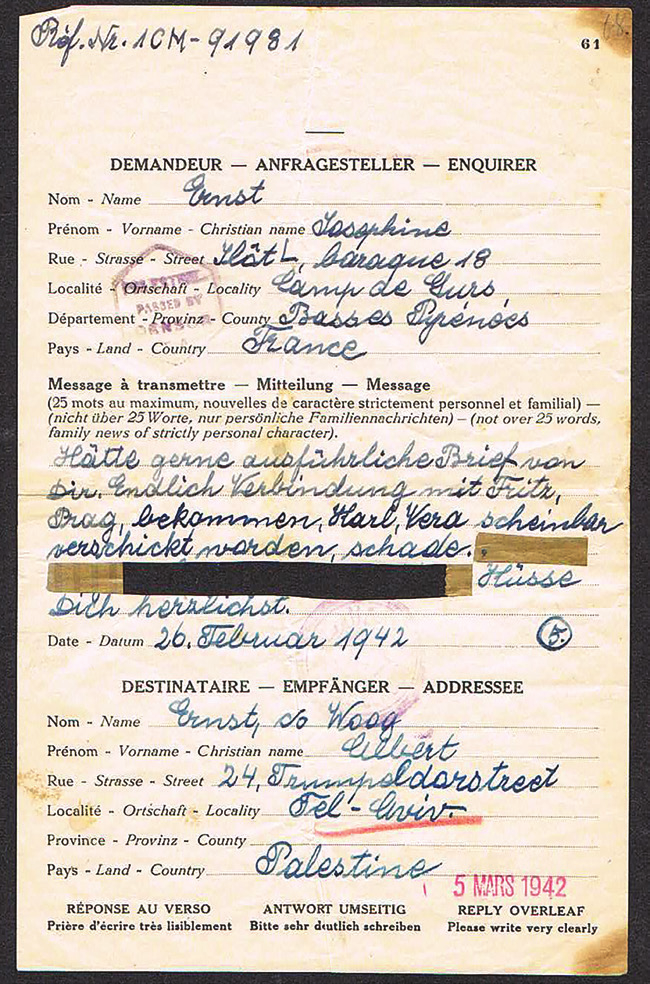 Réf. Nr. 1CM-91981
68.
61
DEMANDEUR — ANFRAGESTELLER — ENQUIRER
Nom - Name Ernst
Prénom - Vorname - Christian name Josephine
Rue - Strasse - Street Ilôt L, baraque 18
Localité - Ortschaft - Locality Camp de Gurs,
Département - Provinz - County Basses Pyrenées
Pays - Land - Country France
PASSED BY
CENSOR
Message à transmettre — Mitteilung — Message
(25 mots au maximum, nouvelles de caractère strictement personnel et familial) —
(nicht über 25 Worte, nur persönliche Familiennachrichten) — (not over 25 words,
family news of strictly personal character).
Hätte gerne ausführliche Brief von
Dir. Endlich Verbindung mit Fritz,
Prag, bekommen, Karl, Vera scheinbar
verschickt worden, schade.
Küsse
Dich herzlichst.
Date - Datum 26. Februar 1942
5.
DESTINATAIRE — EMPFÄNGER — ADDRESSEE
Nom - Name Ernst, c/o Woog
Prénom - Vorname - Christian name Albert
Rue - Strasse - Street 24, Trumpeldorstreet
Localité - Ortschaft - Locality Tel-Aviv.
Province - Provinz - County
Pays - Land - Country Palestine
5 MARS 1942
RÉPONSE AU VERSO ANTWORT UMSEITIG REPLY OVERLEAF
Prière d'écrire très lisiblement Bitte sehr deutlich schreiben Please write very clearly